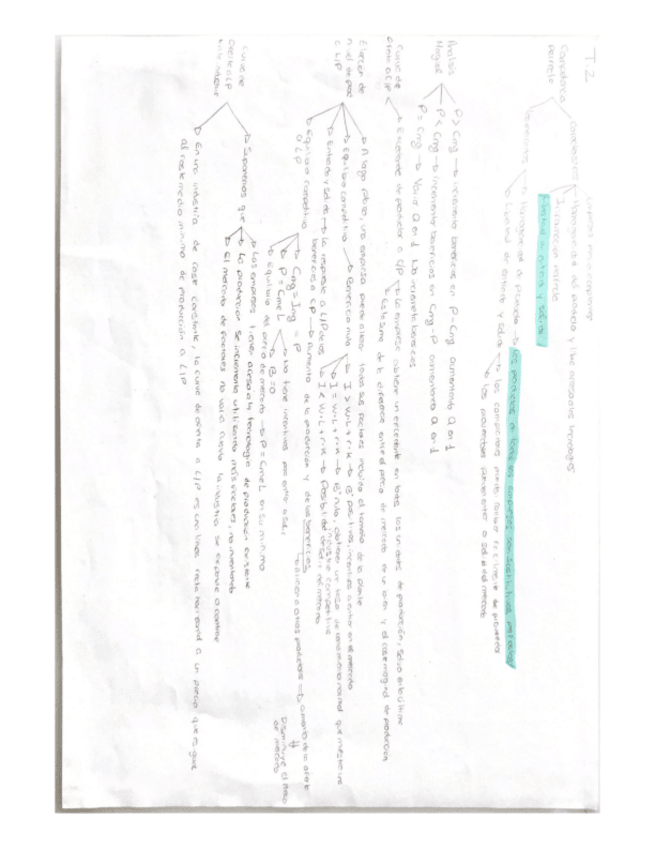 T.2
Competencia perfecta
Características
Homogeneidad del producto y libre acceso a las tecnologías
Información perfecta
Libertad de entrada y salida
Homogeneidad de producto → Los productos de todas las empresas son sustitutivos perfectos
Libertad de entrada y salida → Los compradores pueden cambiar fácilmente de proveedor
Los productores pueden entrar o salir del mercado
Análisis Marginal
P > Cmg → Incrementa beneficios en P - Cmg aumentando Q en 1
P < Cmg → Incrementa beneficios en Cmg - P Q en 1
P = Cmg → Variar Q en 1 no incrementa beneficios
Curva de oferta a C/P
Excedente de productor a C/P → La empresa obtiene un excedente en todas las unidades de producción, salvo en la última
Es la suma de la diferencia entre el precio de mercado de un bien y el coste marginal de producción
Elección de nivel de prod a L/P
A largo plazo, una empresa puede alterar todos sus factores incluido el tamaño de la planta
Equilibrio competitivo → Beneficio nulo
I > w·L + r·K → B positivos incentivos a entrar en el mercado
I = w·L + r·K → B nulo, obtienen una tasa de rendimiento normal
I < w·L + r·K → Posibilidad de salir del mercado
Entrada y salida → La respuesta a C/P de los beneficios a CP → Aumento de la producción y de los beneficios
atraen a otros productores → aumento de la oferta
Disminuye el precio de mercado
Equilibrio competitivo a LP
Cmg = Img = P
P = CmeL
B = 0
No tiene incentivos para entrar o salir
Equilibrio del precio de mercado → P = CmeL en su mínimo
Curva de oferta a LP de la industria
Suponemos que
Las empresas tienen acceso a la tecnología de producción existente
La producción se incrementa utilizando más factores, no inventando
El mercado de factores no varía cuando la industria se expande o contrae
En una industria de coste constante, la curva de oferta a L/P es una línea recta horizontal a un precio que es igual
al coste medio mínimo de producción a L/P